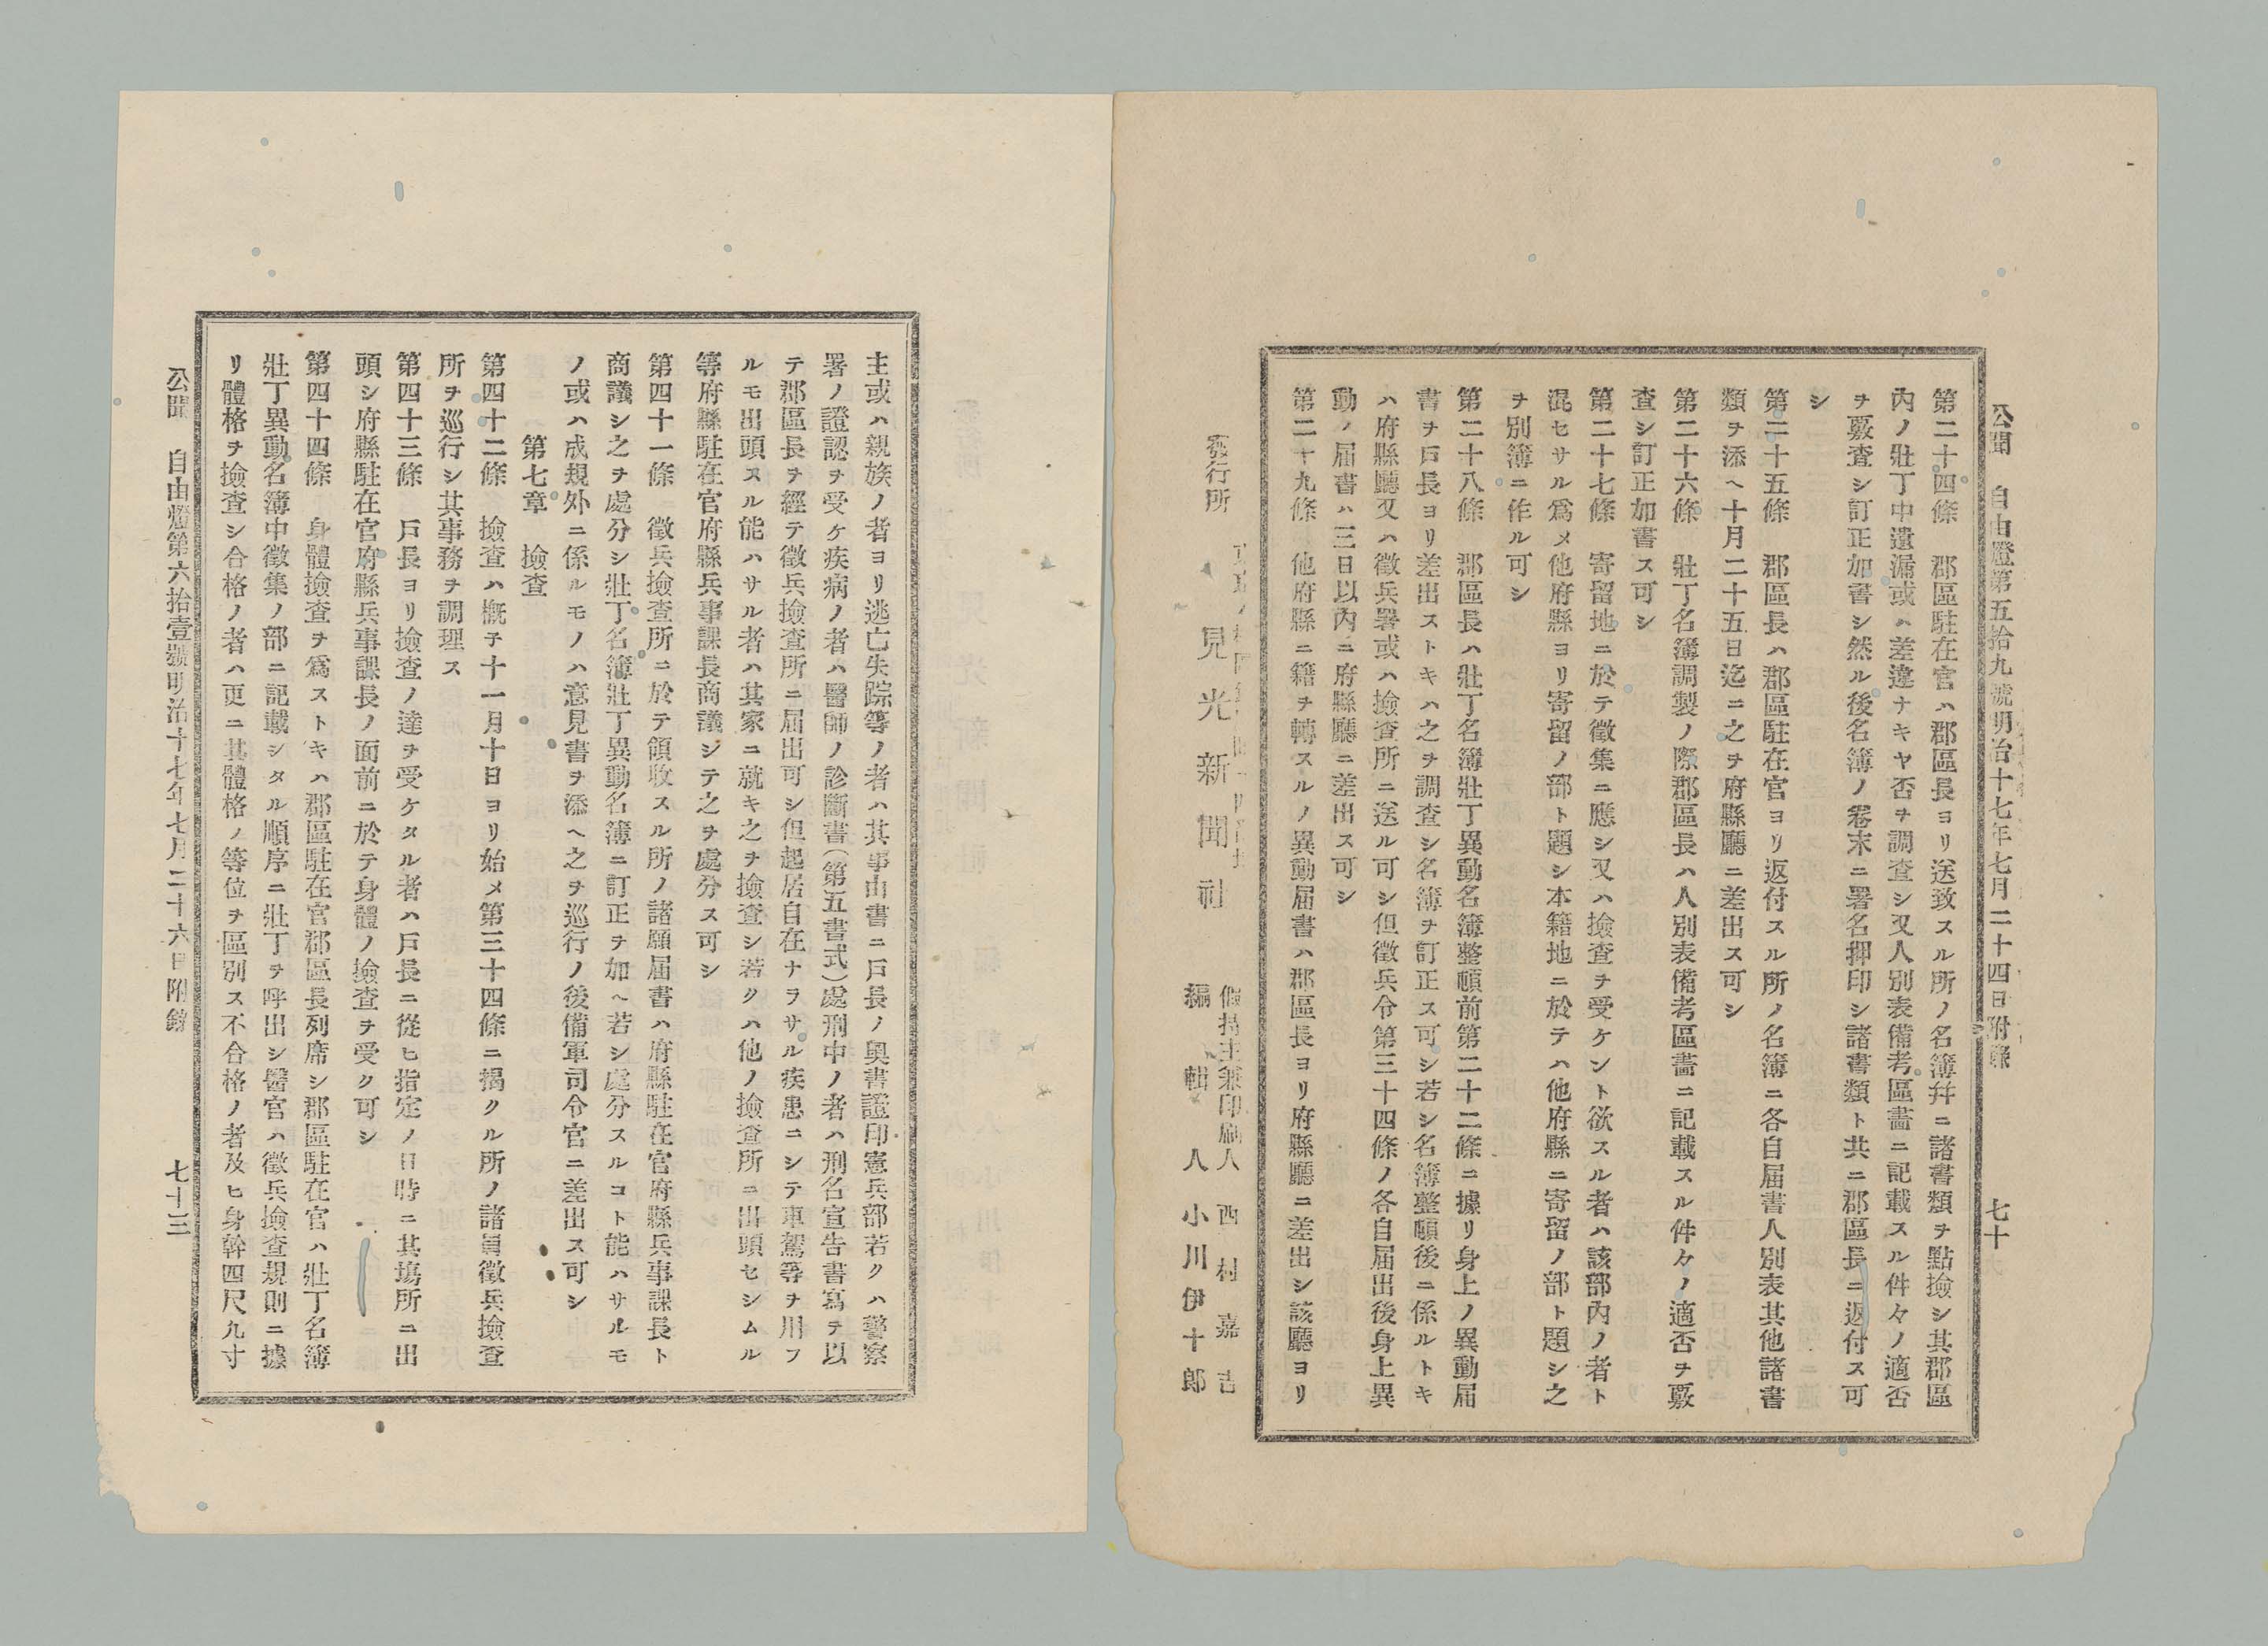 公聞　自由燈第五拾九號明治十七年七月二十四日附錄　七十
第二十四條　郡區駐在官ハ郡區長ヨリ送致スル所ノ名簿幷ニ諸書類ヲ點撿シ其郡區
內ノ壯丁中遺漏或ハ差違ナキヤ否ヲ調査シ又人別表備考區畵ニ記載スル件々ノ適否
ヲ覈査シ訂正加書シ然ル後名簿ノ卷末ニ署名押印シ諸書類ト共ニ郡區長ニ返付ス可
シ
第二十五條　郡區長ハ郡區駐在官ヨリ返付スル所ノ名簿ニ各自届書人別表其他諸書
類ヲ添ヘ十月二十五日迄ニ之ヲ府縣廳ニ差出ス可シ
第二十六條　壯丁名簿調製ノ際郡區長ハ人別表備考區畵ニ記載スル件々ノ適否ヲ覈
査シ訂正加書ス可シ
第二十七條　寄留地ニ於テ徵集ニ應シ又ハ撿査ヲ受ケント欲スル者ハ該部內ノ者ト
混セサル爲メ他府縣ヨリ寄留ノ部ト題シ本籍地ニ於テハ他府縣ニ寄留ノ部ト題シ之
ヲ別簿ニ作ル可シ
第二十八條　郡區長ハ壯丁名簿壯丁異動名簿整頓前第二十二條ニ據リ身上ノ異動届
書ヲ戶長ヨリ差出ストキハ之ヲ調査シ名簿ヲ訂正ス可シ若シ名簿整頓後ニ係ルトキ
ハ府縣廳又ハ徵兵署或ハ撿査所ニ送ル可シ但徵兵令第三十四條ノ各自届出後身上異
動ノ届書ハ三日以內ニ府縣廳ニ差出ス可シ
第二十九條　他府縣ニ籍ヲ轉スルノ異動届書ハ郡區長ヨリ府縣廳ニ差出シ該廳ヨリ
假持主兼印刷人　西村嘉吉
發行所　見光新聞社
編輯人　小川伊十郎
主或ハ親族ノ者ヨリ逃亡失踪等ノ者ハ其事由書ニ戶長ノ奧書證印憲兵部若クハ警察
署ノ證認ヲ受ケ疾病ノ者ハ醫師ノ診斷書（第五書式）處刑中ノ者ハ刑名宣告書寫ヲ以
テ郡區長ヲ經テ徵兵撿査所ニ届出可シ但起居自在ナラサル疾患ニシテ車駕等ヲ用フ
ルモ出頭スル能ハサル者ハ其家ニ就キ之ヲ撿査シ若クハ他ノ撿査所ニ出頭セシムル
等府縣駐在官府縣兵事課長商議シテ之ヲ處分ス可シ
第四十一條　徵兵撿査所ニ於テ領收スル所ノ諸願届書ハ府縣駐在官府縣兵事課長ト
商議シ之ヲ處分シ壯丁名簿壯丁異動名簿ニ訂正ヲ加ヘ若シ處分スルコト能ハサルモ
ノ或ハ成規外ニ係ルモノハ意見書ヲ添ヘ之ヲ巡行ノ後備軍司令官ニ差出ス可シ
第七章　撿査
第四十二條　撿査ハ概子十一月十日ヨリ始メ第三十四條ニ揭クル所ノ諸員徵兵撿査
所ヲ巡行シ其事務ヲ調理ス
第四十三條　戶長ヨリ撿査ノ達ヲ受ケタル者ハ戶長ニ從ヒ指定ノ日時ニ其塲所ニ出
頭シ府縣駐在官府縣兵事課長ノ面前ニ於テ身體ノ撿査ヲ受ク可シ
第四十四條　身體撿査ヲ爲ストキハ郡區駐在官郡區長列席シ郡區駐在官ハ壯丁名簿
壯丁異動名簿中徵集ノ部ニ記載シタル順序ニ壯丁ヲ呼出シ醫官ハ徵兵撿查規則ニ據
リ體格ヲ撿查シ合格ノ者ハ更ニ其體格ノ等位ヲ區別ス不合格ノ者及ヒ身幹四尺九寸
公聞　自由燈第六拾壹號明治十七年七月二十六日附錄　七十三